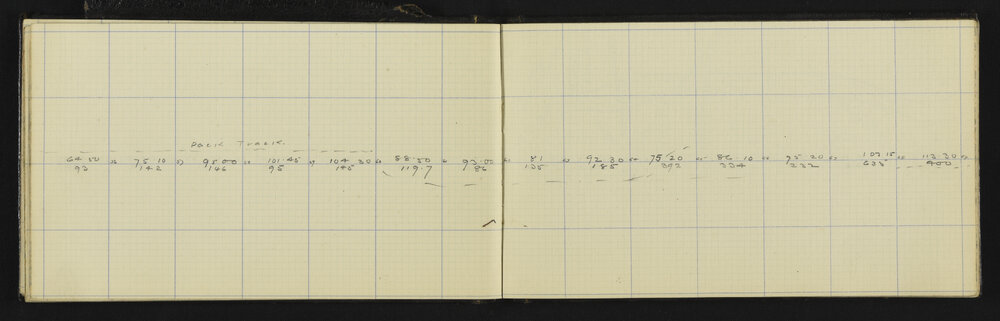 Pack Track.
64.50 75.10 95.00 101.45 104.30 88.50 93.00 81 92.30 75.20 86.10 95.20 107.15 113.30
93 142 146 95 145 119.7 86 135 185 392 334 232 633 400